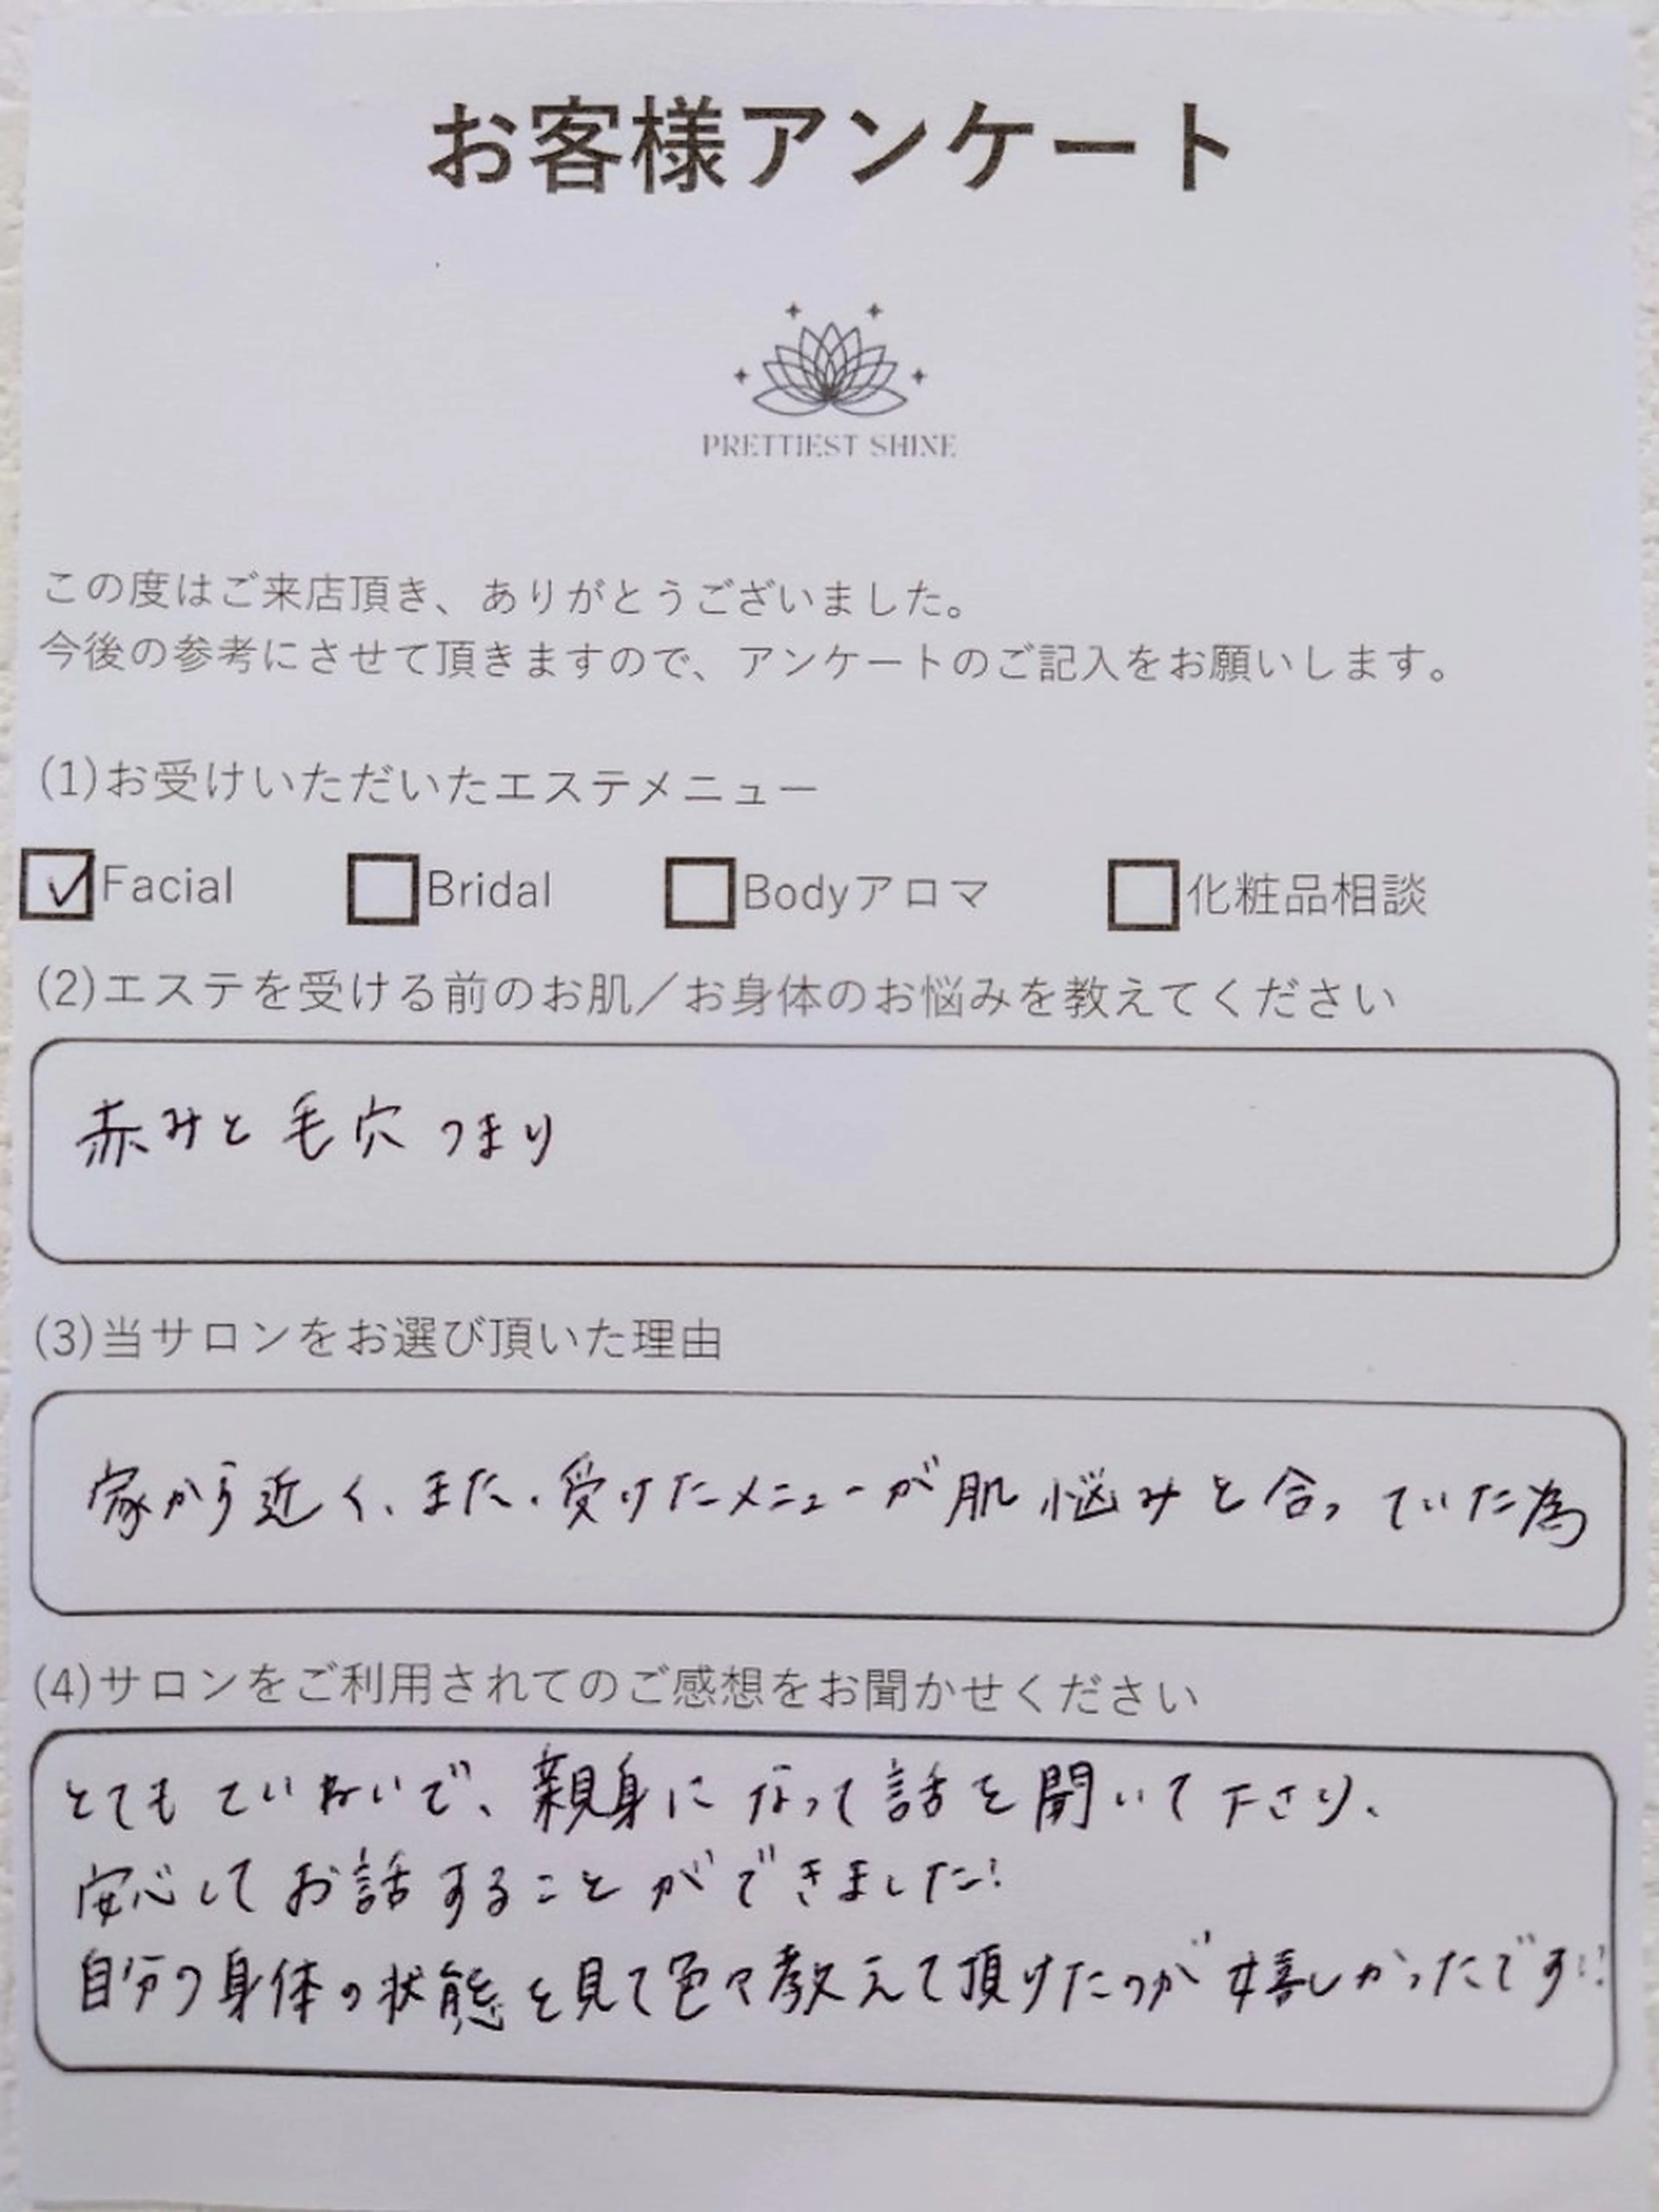 お客様アンケート
PRETTIEST SHINE
この度はご来店頂き、ありがとうございました。
今後の参考にさせて頂きますので、アンケートのご記入をお願いします。
(1)お受けいただいたエステメニュー
☑Facial ☐Bridal ☐Bodyアロマ ☐化粧品相談
(2)エステを受ける前のお肌／お身体のお悩みを教えてください
赤みと毛穴つまり
(3)当サロンをお選び頂いた理由
家から近く、また、受けたメニューが肌悩みと合っていた為
(4)サロンをご利用されてのご感想をお聞かせください
とてもていねいで、親身になって話を聞いて下さり、
安心してお話することができました!
自分の身体の状態を見て色々教えて頂けたのが嬉しかったです!!